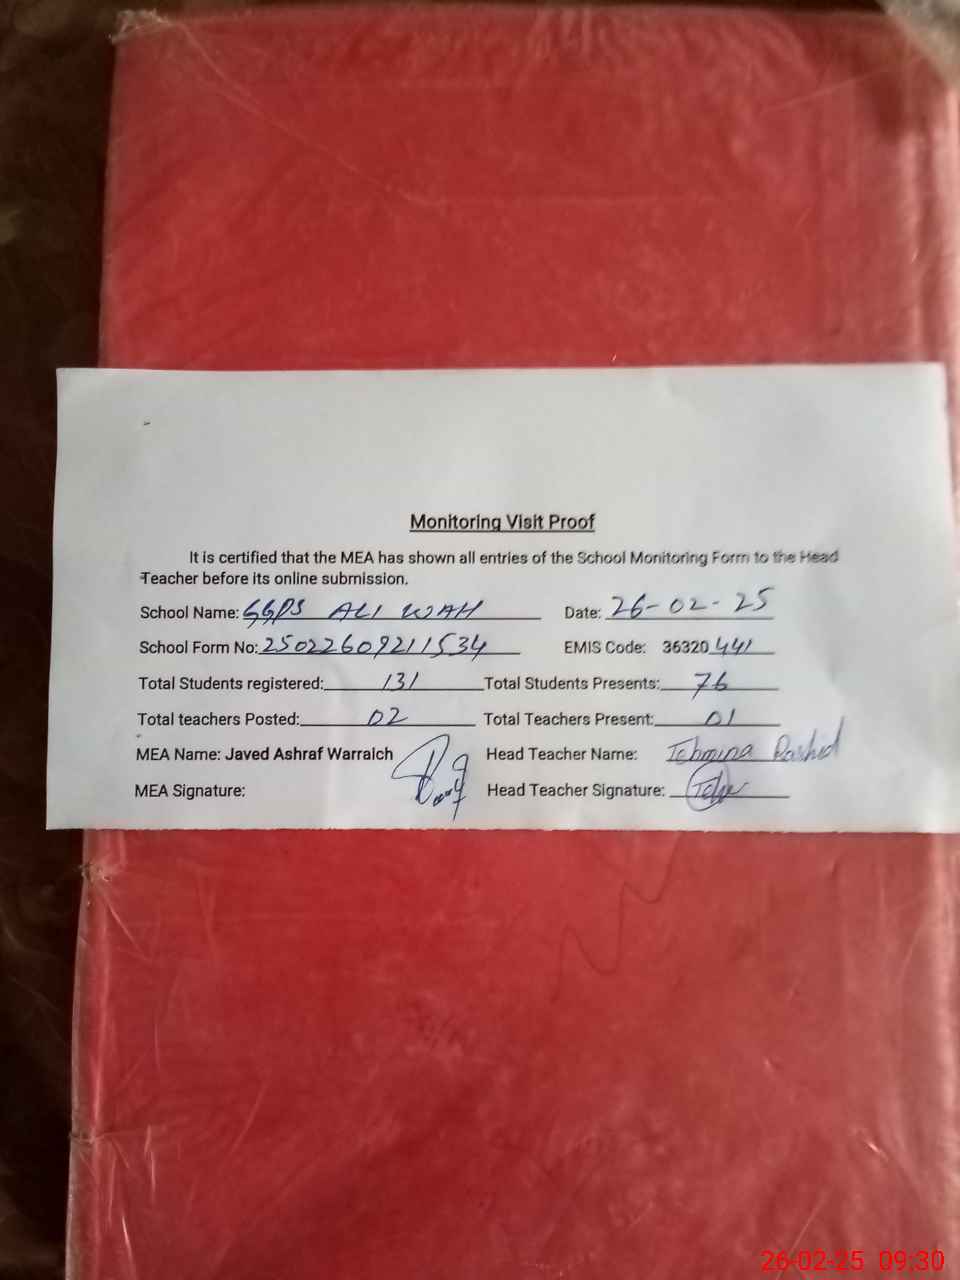 Monitoring Visit Proof
It is certified that the MEA has shown all entries of the School Monitoring Form to the Head
Teacher before its online submission.
School Name: GGPS ALI WAH Date: 26-02-25
School Form No: 25022609211534 EMIS Code: 36320441
Total Students registered: 131 Total Students Presents: 76
Total teachers Posted: 02 Total Teachers Present: 01
MEA Name: Javed Ashraf Warraich Head Teacher Name: Tehmina Rashid
MEA Signature: Head Teacher Signature:
26-02-25 09:30